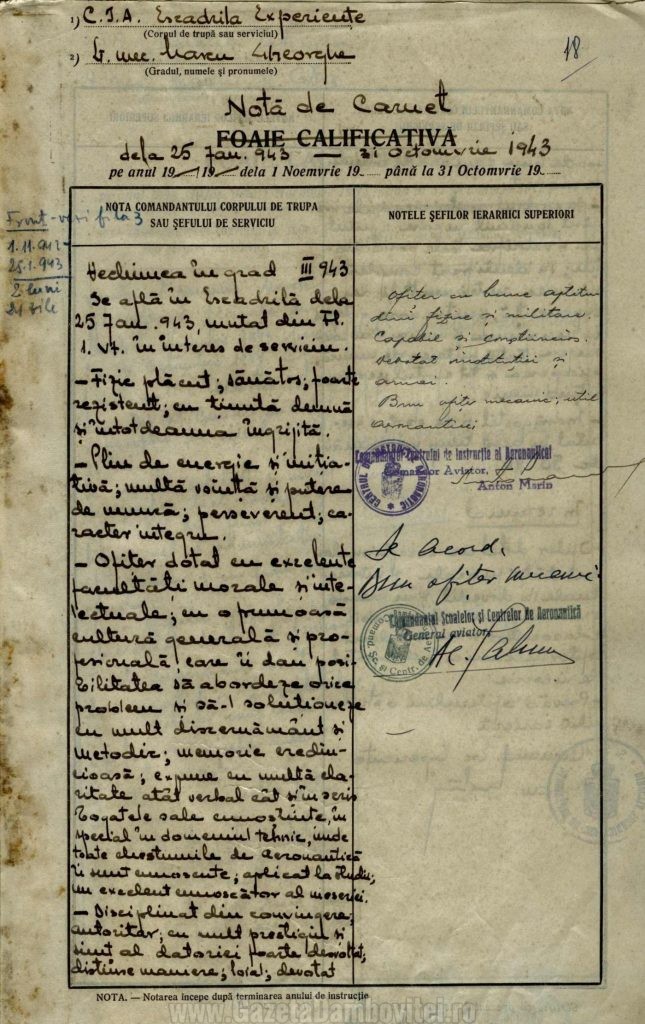 1) C.I.A. Escadrila Experiente
(Corpul de trupă sau serviciul)
2) Lt. mec. Marcu Gheorghe
(Gradul, numele și pronumele)
18
Notă de Carnet
FOAIE CALIFICATIVĂ
dela 25 Jan. 943 — 31 Octomvrie 1943
pe anul 19 19 dela 1 Noemvrie 19 până la 31 Octomvrie 19
NOTA COMANDANTULUI CORPULUI DE TRUPA
SAU ȘEFULUI DE SERVICIU
Front - vezi fila 3
1.11.942-
25.1.943
2 luni
21 zile
Vechimea în grad III 943
Se află în Escadrilă dela
25 Jan. 943, mutat din Fl.
1. Vt. în interes de serviciu.
— Fizic plăcut; sănătos; foarte
rezistent; cu ținută demnă
și întotdeauna îngrijită.
— Plin de energie și iniția-
tivă; multă voință și putere
de muncă; perseverent; ca-
racter integru.
— Ofițer dotat cu excelente
facultăți morale și inte-
lectuale; cu o frumoasă
cultură generală și pro-
fesională, care îi dau posi-
bilitatea să abordeze orice
problem și să-l soluționeze
cu mult discernământ și
metodic; memorie credin-
cioasă; expune cu multă cla-
ritate atât verbal cât și în scris
bogatele sale cunoștințe, în
special în domeniul tehnic, unde
toate chestiunile de aeronautică
îi sunt cunoscute; aplicat la studiu;
un excelent cunoscător al meseriei.
— Disciplinat din convingere;
autoritar; cu mult prestigiu și
simț al datoriei foarte desvoltat;
distinse maniere; loial; devotat
NOTELE ȘEFILOR IERARHICI SUPERIORI
Ofițer cu bune aptitu
dini fizice și militare.
Capabil și conștiincios.
Devotat instituției și
armei.
Bun ofițer mecanic; util
aeronauticei
Comandantul Centrului de Instrucția al Aeronauticei
Comandor Aviator,
Anton Marin
De acord.
Bun ofițer mecanic
Comandantul Școalelor și Centrelor de Aeronautică
General aviator,
NOTA. — Notarea începe după terminarea anului de instrucție
www.GazetaDambovitei.ro